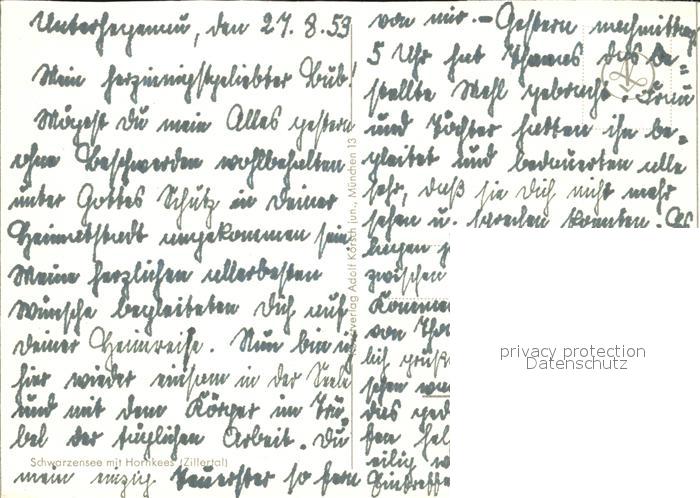 Unterhegenau, den 27. 8. 59
Mein herzinnigstgeliebter Bub!
Mögest Du mein Alles gestern
ohne Beschwerden wohlbehalten
unter Gottes Schutz in Deiner
Heimatstadt angekommen sein.
Meine herzlichen allerbesten
Wünsche begleiteten Dich auf
Deiner Heimreise. Nun bin ich
hier wieder einsam in der Seele
und mit dem Körper im Tru-
bel der täglichen Arbeit. Du
mein einzig Teuerster so fern
von mir. – Gestern nachmittag
5 Uhr hat Thomas das be-
stellte Mehl gebracht. Frau
und Tochter hatten ihn be-
gleitet und bedauerten alle
sehr, daß sie Dich nicht mehr
sehen u. sprechen konnten.
zwischen
von
lich
schen
das
eilig
Schwarzensee mit Hornkees (Zillertal)
Kunstverlag Adolf Korsch jun., München 13
privacy protection
Datenschutz